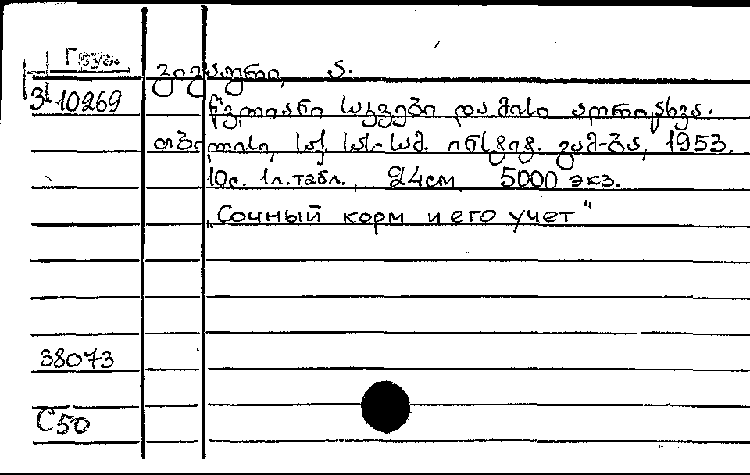 Груз.
ა.
3/10269
წვნიანი საკვები და მისი აღრიცხვა.
თბილისი, საქ. სას.-სამ. ინსტიტ. გამ-ბა, 1953.
10с. 1л.табл., 24см 5000 экз.
„Сочный корм и его учет"
38073
С50